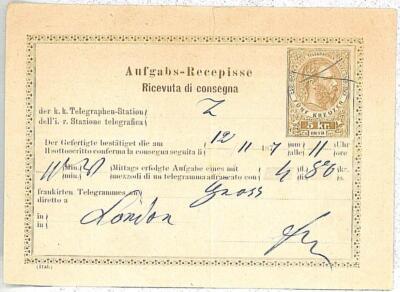 Aufgabs-Recepisse
Ricevuta di consegna
der k. k. Telegraphen-Station
dell'i. r. Stazione telegrafica
Z
FÜNF KREUZER
5 kr.
1873
Der Gefertigte bestätiget die am 12/11 um 11 Uhr
Il sottoscritto conferma la consegna seguita li alle ore
Min. Mittags erfolgte Aufgabe eines mit 4 f 80 kr.
Min. mezzodì di un telegramma affrancato con
frankirten Telegrammes von Gross
diretto da
in London
in